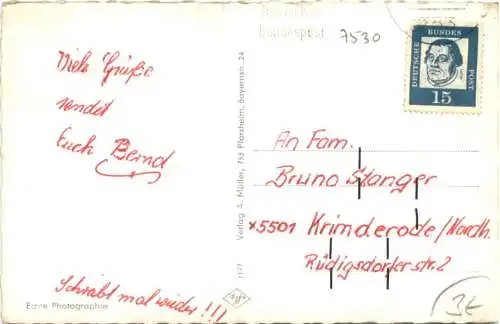 Viele Grüße
sendet
Euch Bernd
Schreibt mal wieder!!!
Echte Photographie
Verlag A. Müller, 753 Pforzheim, Bayernstr. 24
7530
DEUTSCHE BUNDES POST
15
An Fam.
Bruno Stanger
x5501 Krimderode/Nordh.
Rüdigsdorfer str. 2
3€